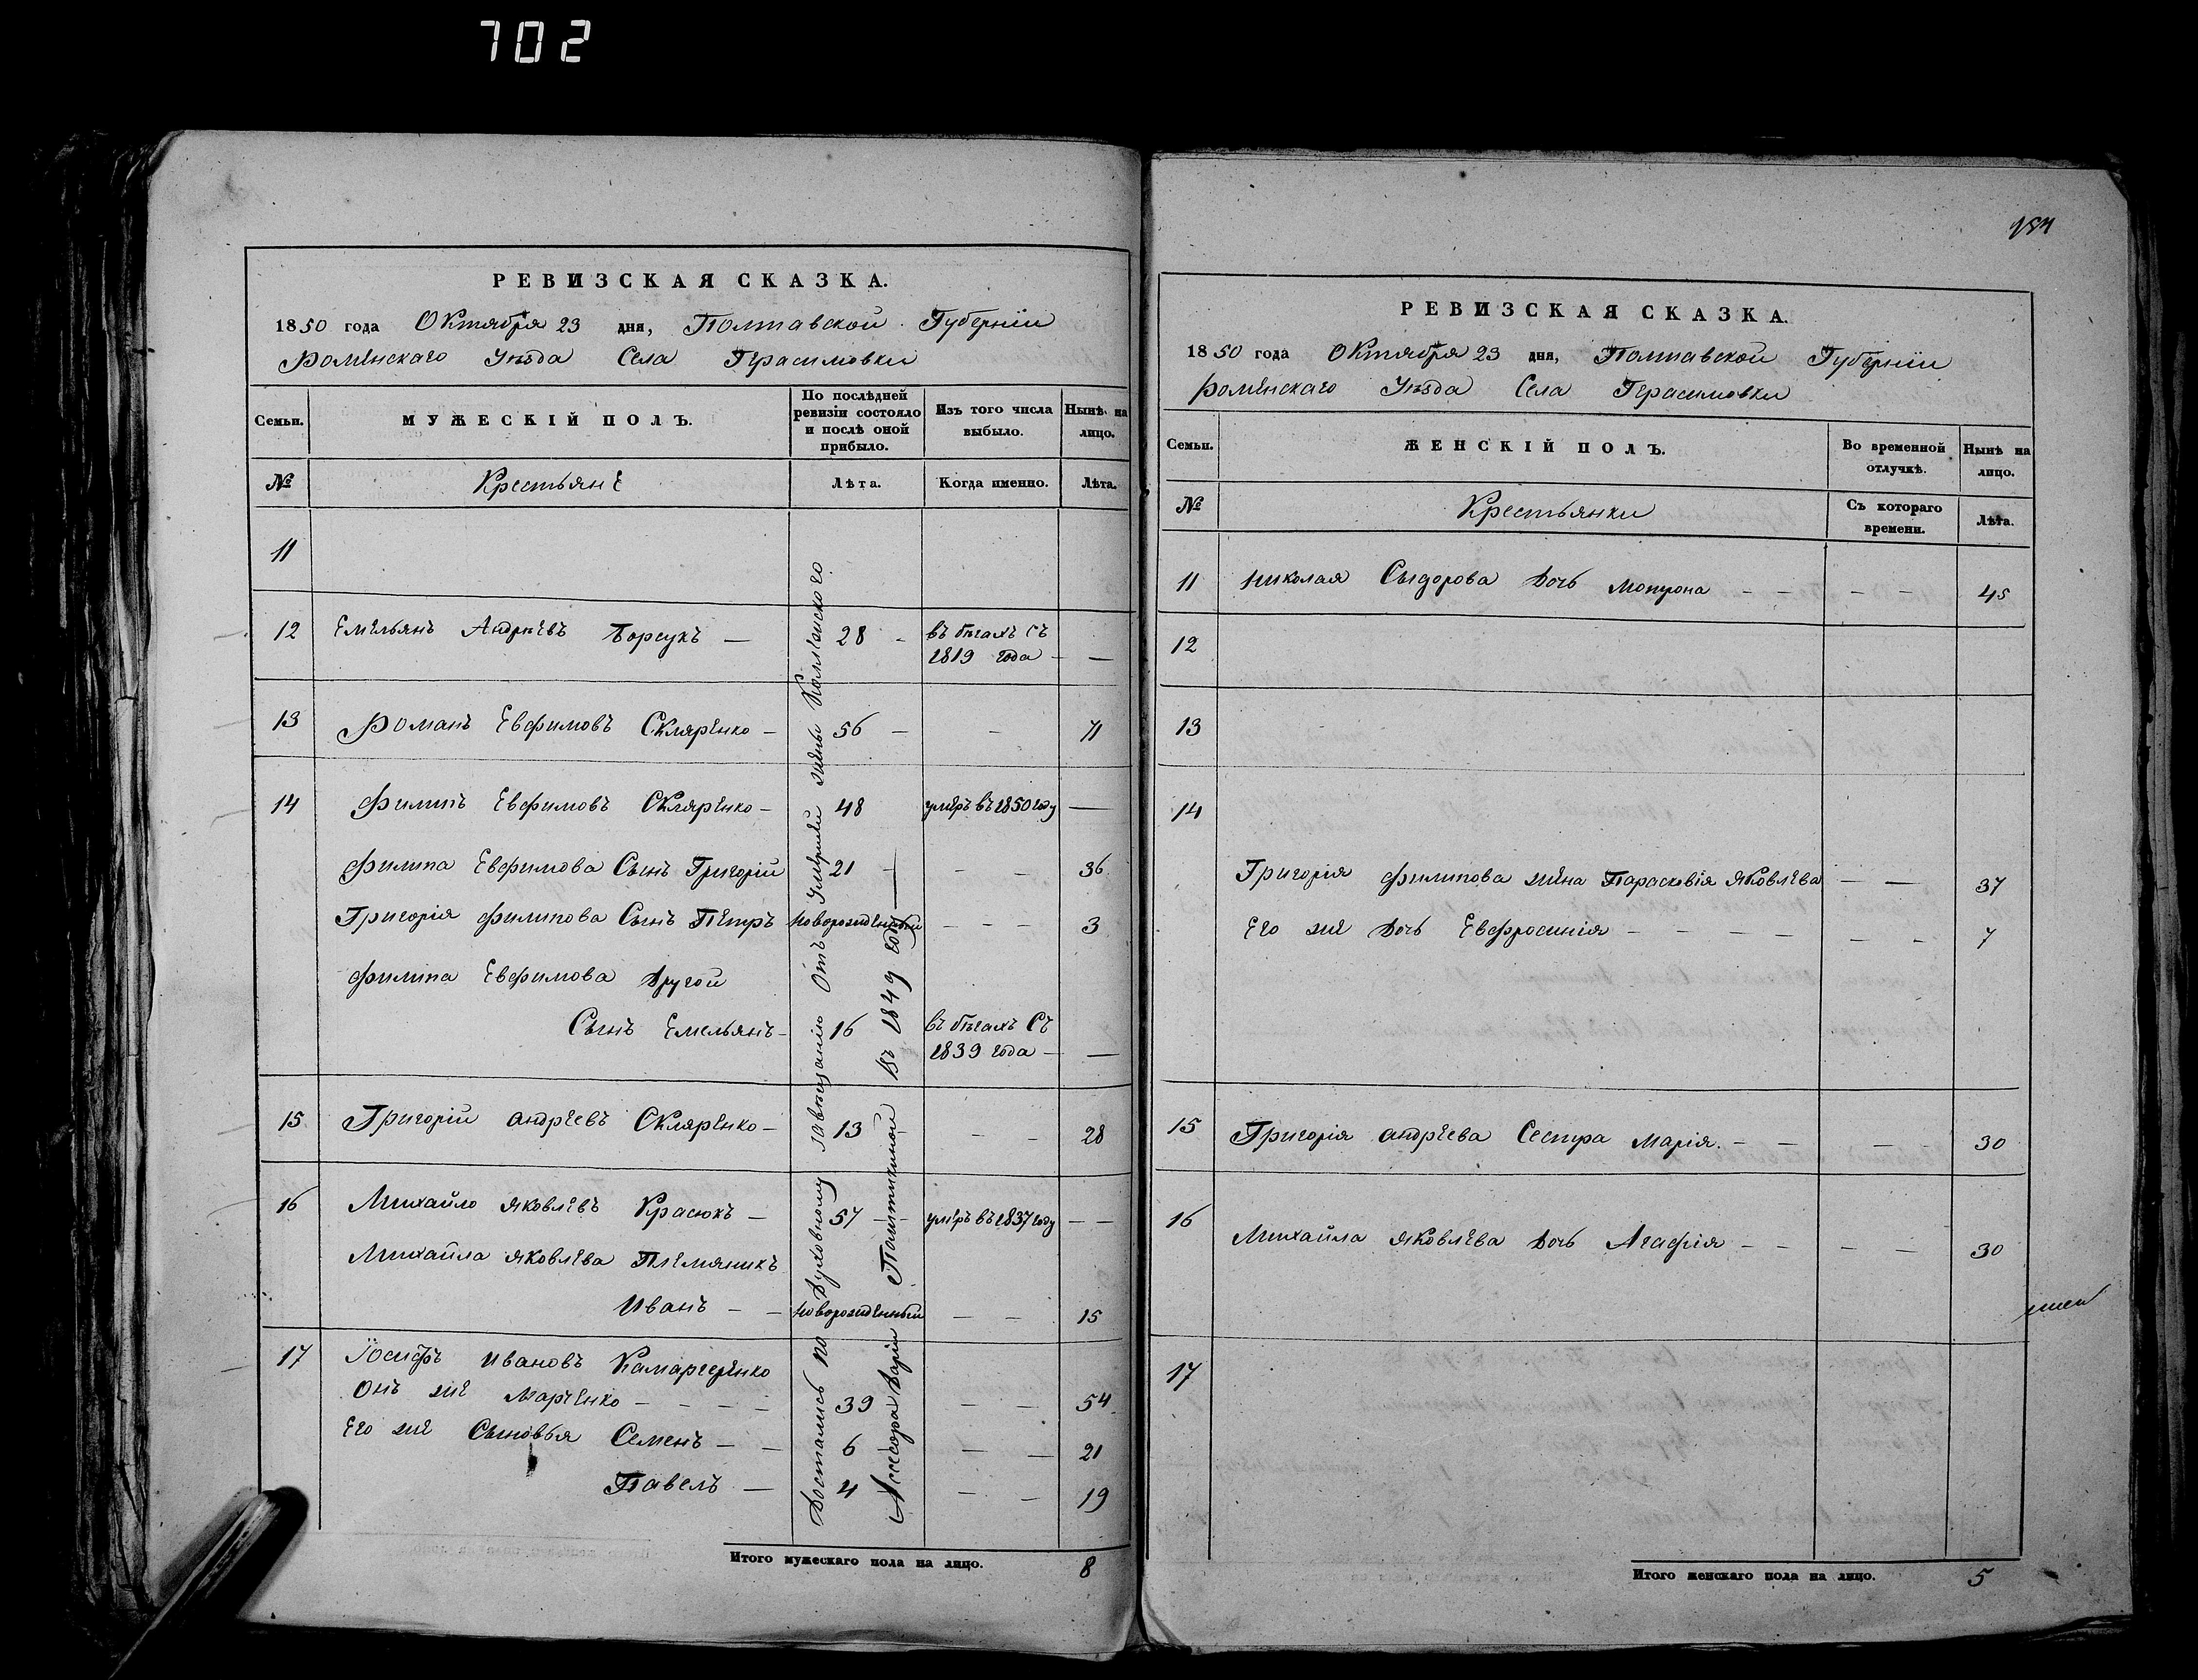 702
РЕВИЗСКАЯ СКАЗКА.
1850 года Октября 23 дня, Полтавской Губерніи
Роменскаго Уѣзда Села Герасимовки
Семьи.
МУЖЕСКІЙ ПОЛЪ.
По послѣдней ревизіи состояло и послѣ оной прибыло.
Изъ того числа выбыло.
Нынѣ на лицо.
№
Крестьяне
Лѣта.
Когда именно.
Лѣта.
11
12 Емельянъ Андреевъ Борсукъ — 28 - въ бѣгахъ съ
1819 года — —
13 Романъ Евфимовъ Скляренко — 56 — — 71
14 Филипъ Евфимовъ Скляренко — 48 умеръ въ 1850 году —
Филипа Евфимова Сынъ Григорій 21 — — — 36
Григорія Филипова Сынъ Петръ новорожденный — — — 3
Филипа Евфимова другой
Сынъ Емельянъ — 16 въ бѣгахъ Съ
1839 года — —
15 Григорій Андреевъ Скляренко — 13 — — — 28
16 Михайло Яковлевъ Красюкъ — 57 — — умеръ въ 1837 году — —
Михайла Яковлева Племяникъ
Иванъ — — новорожденный — — 15
17 Іосифъ Ивановъ Камарчеренко
Онъ же Марченко — — — — 39 — — 54
Его же Сыновья Семенъ — — 6 — — 21
Павелъ — 4 — — 19
Достались по Духовному завѣщанію Отъ Умершей жены Колежского
Ассесора Дарьи Пашткиной въ 1849 году
Итого мужескаго пола на лицо. 8
РЕВИЗСКАЯ СКАЗКА.
1850 года Октября 23 дня, Полтавской Губерніи
Роменскаго Уѣзда Села Герасимовки
Семьи.
ЖЕНСКІЙ ПОЛЪ.
Во временной отлучкѣ.
Нынѣ на лицо.
№
Крестьянки
Съ котораго времени.
Лѣта.
11 Николая Сыдорова Дочь Мотрона — — — — 45
12
13
14
Григорія Филипова жена Парасковія Яковлева — — 37
Его же Дочь Евфросинія — — — — — — 7
15 Григорія Андреева Сестра Марія. — — — — 30
16 Михайла Яковлева Дочь Агафія — — — — 30
17
Итого женскаго пола на лицо. 5